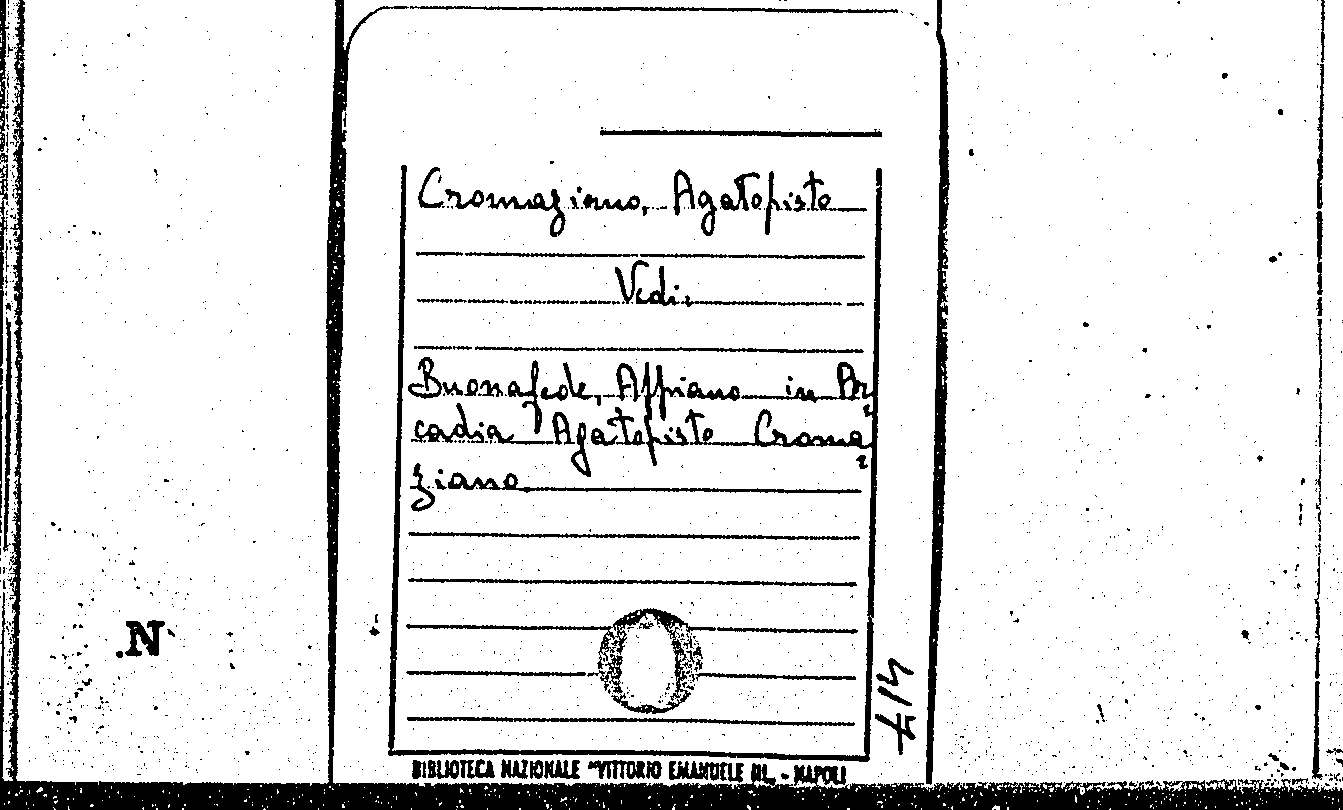 Cromaziano, Agatopisto
Vedi:
Buonafede, Appiano in Ar=
cadia Agatopisto Croma=
ziano.
.N
417
BIBLIOTECA NAZIONALE "VITTORIO EMANUELE III„ - NAPOLI